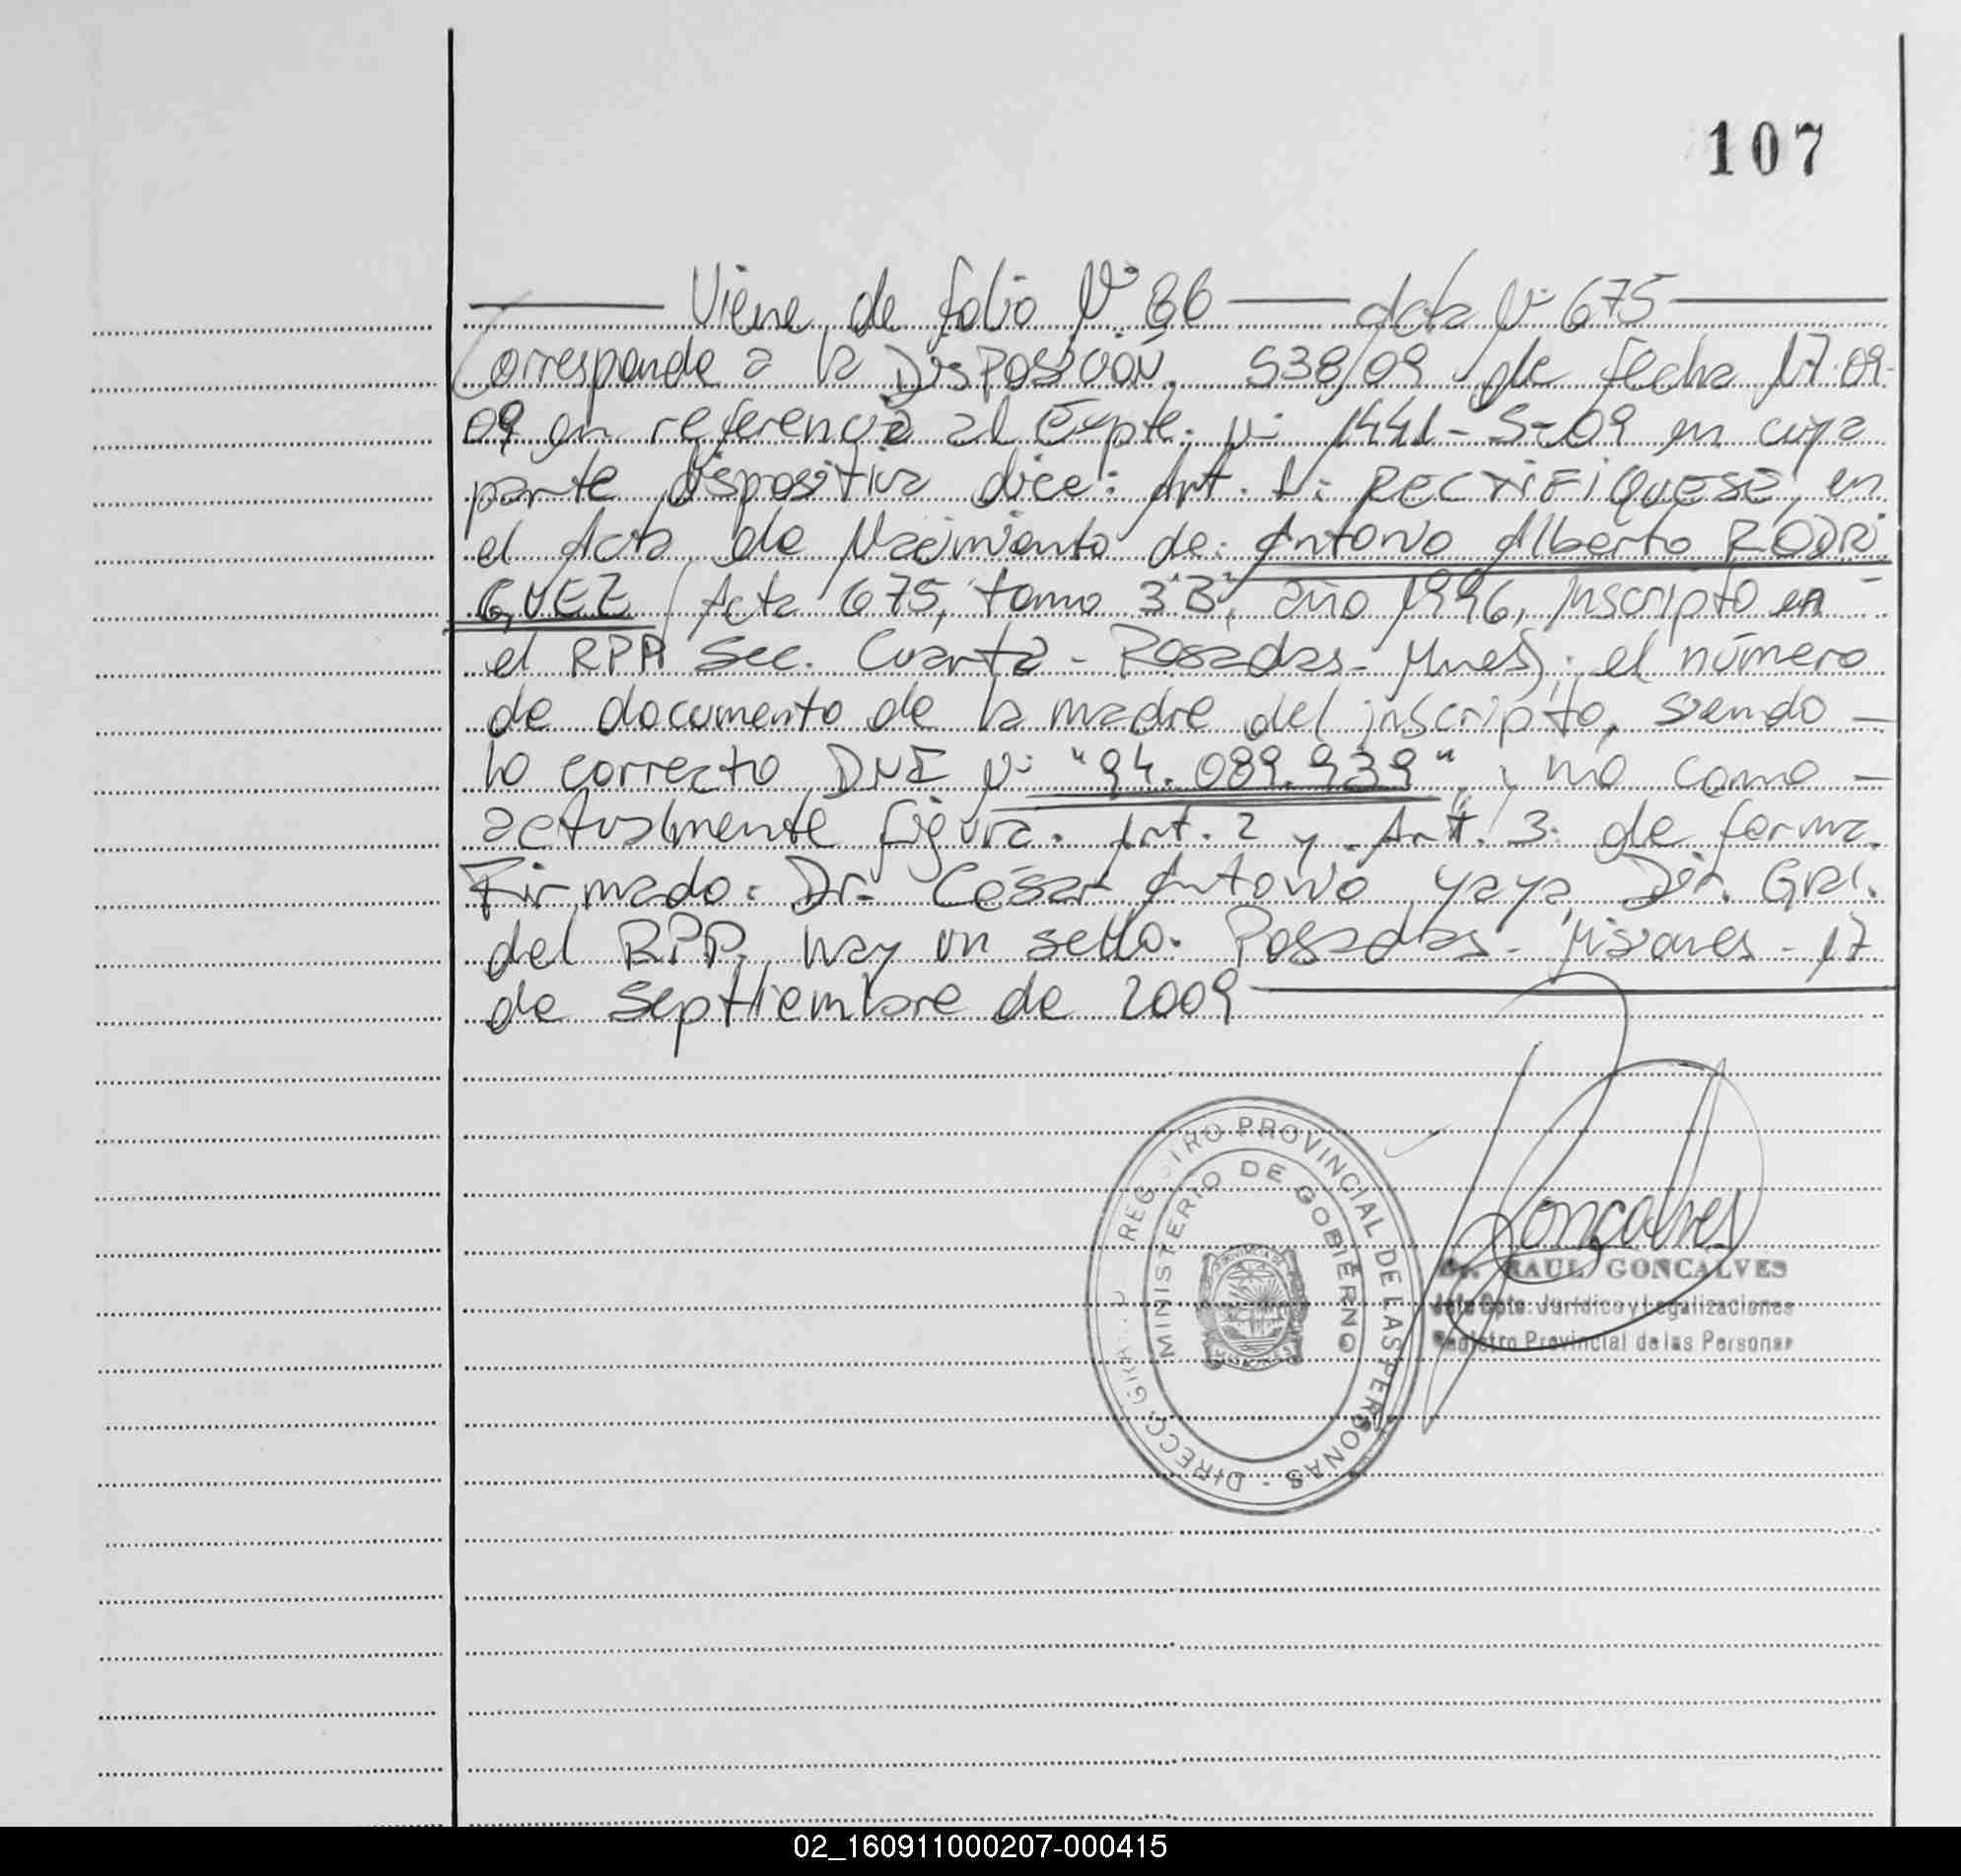 107
Viene de folio Nº 86 — Acta Nº 675
Corresponde a la DISPOSICIÓN. 538/09 de fecha 17.09.
09 en referencia al Expte. Nº 1441-S-09 en cuya
parte dispositiva dice: Art. 1: RECTIFIQUESE, en
el Acta de Nacimiento de: Antonio Alberto RODRI
GUEZ (Acta 675, tomo 3"B", año 1996, inscripto en -
el RPP Sec. Cuarta - Posadas - Mnes); el número
de documento de la madre del inscripto, siendo —
lo correcto DNI Nº "94.089.939", no como —
actualmente figura. Art. 2 y Art. 3: de forma.
Firmado: Dr. César Antonio Yaya, Dir. Gral.
del RPP, hay un sello. Posadas - Misiones - 17
de Septiembre de 2009
REGISTRO PROVINCIAL DE LAS PERSONAS - DIRECC. GRAL
MINISTERIO DE GOBIERNO
PROVINCIA DE
MISIONES
Goncalves
Dr. RAUL GONCALVES
Jefe Dpto. Jurídico y Legalizaciones
Registro Provincial de las Personas
02_160911000207-000415